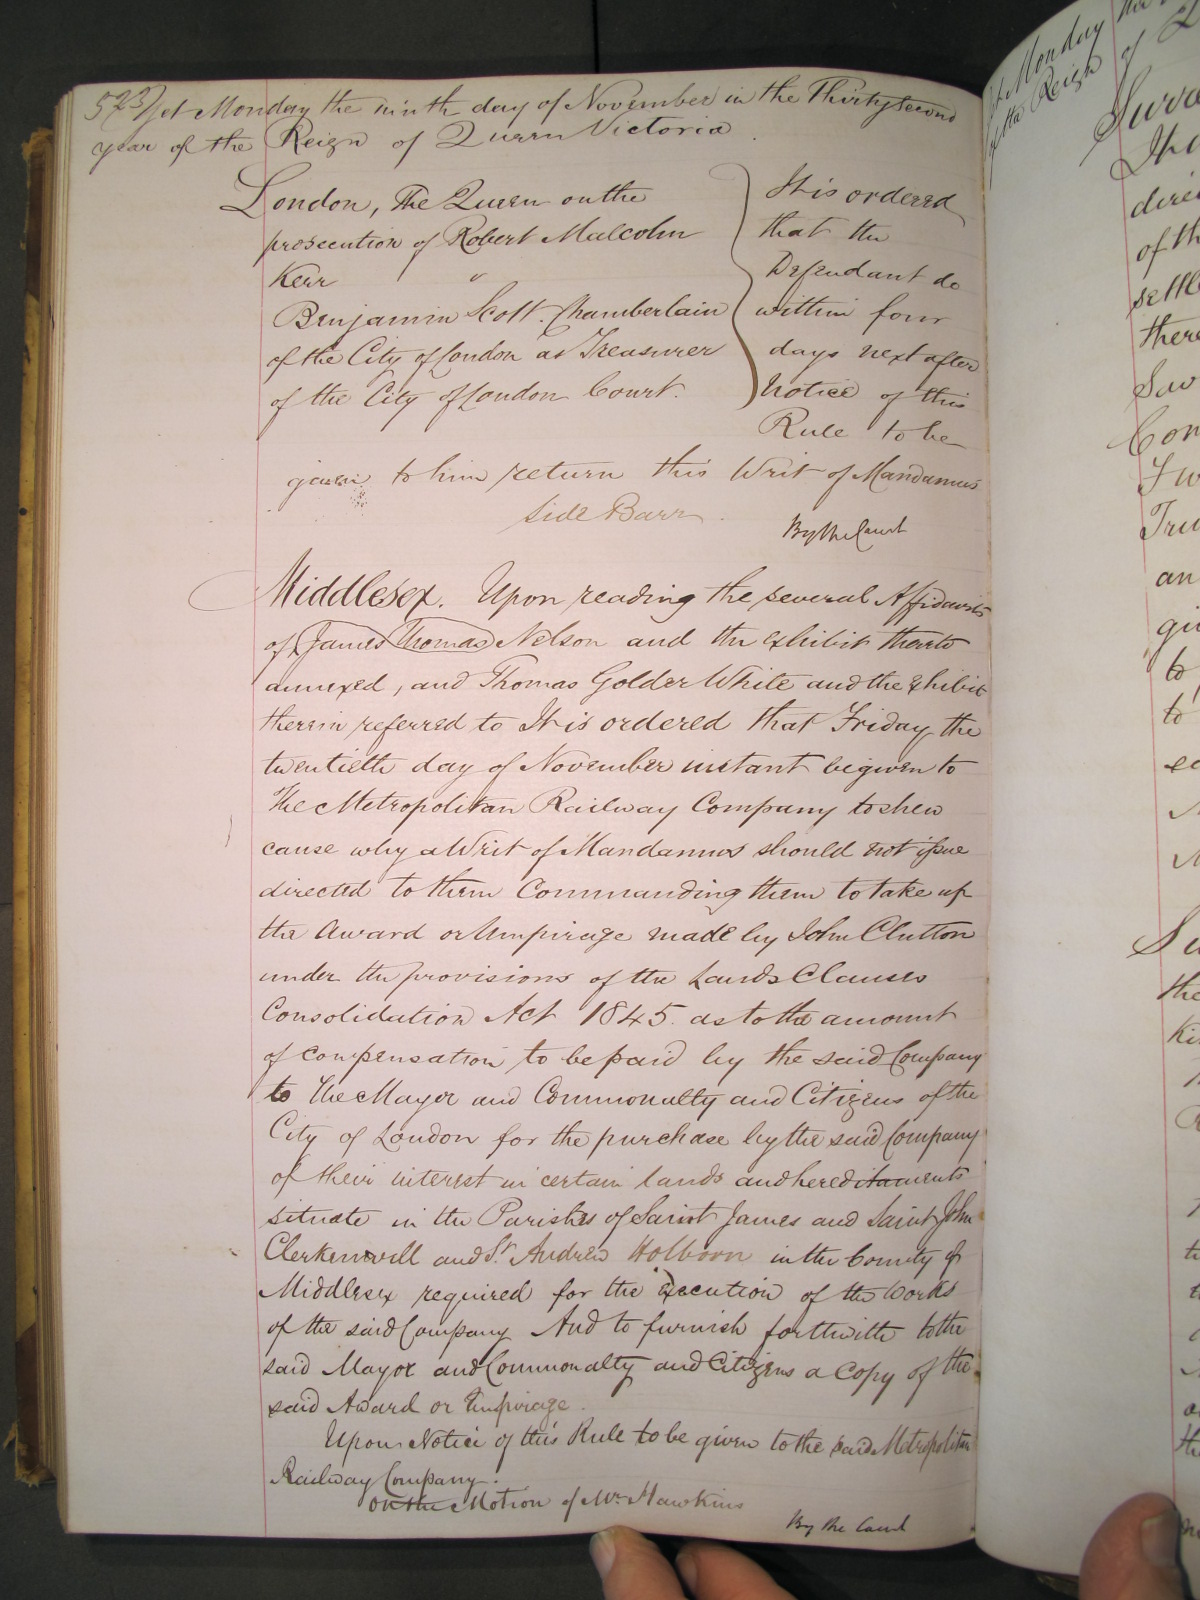 523 Yet Monday the ninth day of November in the Thirty second
year of the Reign of Queen Victoria
London, The Queen on the
prosecution of Robert Malcolm
Kerr
Benjamin Scott. Chamberlain
of the City of London as Treasurer
of the City of London Court.
It is ordered
that the
Defendant do
within four
days next after
Notice of this
Rule to be
given to him return this Writ of Mandamus
Side Barr
By the Court
Middlesex. Upon reading the several Affidavits
of James Thomas Nelson and the exhibit thereto
annexed, and Thomas Golder White and the exhibit
therein referred to It is ordered that Friday the
twentieth day of November instant be given to
The Metropolitan Railway Company to shew
cause why a Writ of Mandamus should not issue
directed to them Commanding them to take up
the Award or Umpirage made by John Clutton
under the provisions of the Lands Clauses
Consolidation Act 1845. as to the amount
of compensation to be paid by the said Company
to The Mayor and Commonalty and Citizens of the
City of London for the purchase by the said Company
of their interest in certain lands and hereditaments
situate in the Parishes of Saint James and Saint John
Clerkenwell and St. Andrew Holborn in the County of
Middlesex required for the execution of the Works
of the said Company And to furnish forthwith to the
said Mayor and Commonalty and Citizens a Copy of the
said Award or Umpirage.
Upon Notice of this Rule to be given to the said Metropolitan
Railway Company.
On the Motion of Mr. Hawkins
By the Court
yet Monday the
of the Reign of Q
Surre
direc
of th
settle
there
Sav
Con
Tru
an
gi
to
to
Su
the